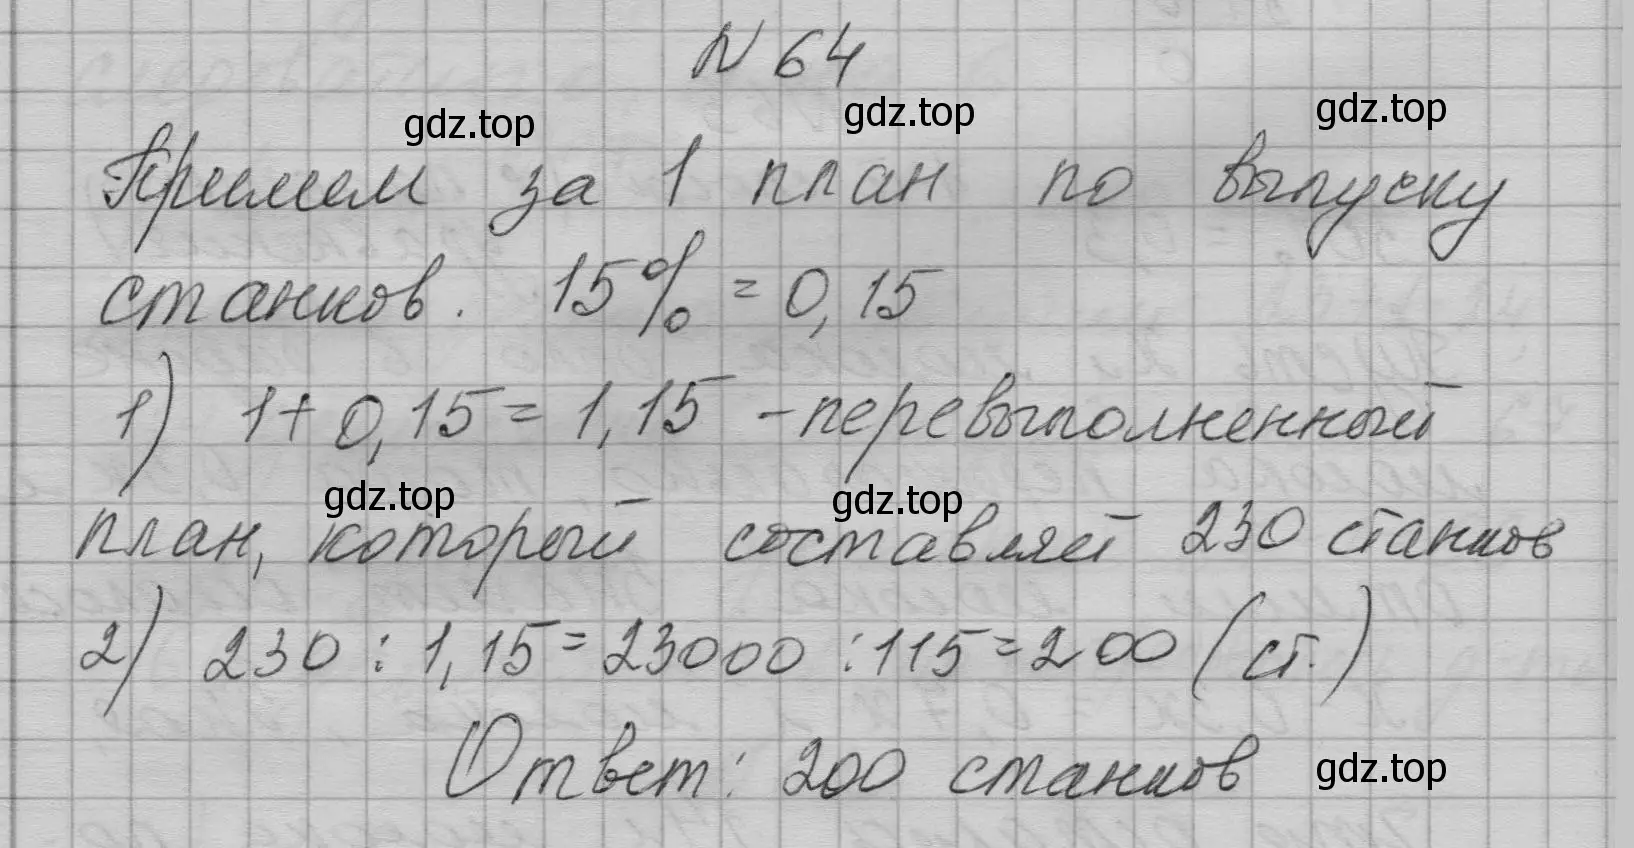 N 64
gdz.top gdz.top gdz.top
Примем за 1 план по выпуску
станков. 15% = 0,15
1) 1+0,15=1,15 -перевыполненный
gdz.top gdz.top
план, который составляет 230 станков
2) 230 : 1,15=23000 :115=200 (ст.)
Ответ: 200 станков gdz.top